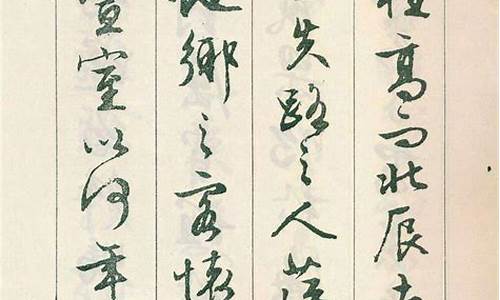 柱高而北辰
失路之人萍
他鄉之客懷
宣室以何年